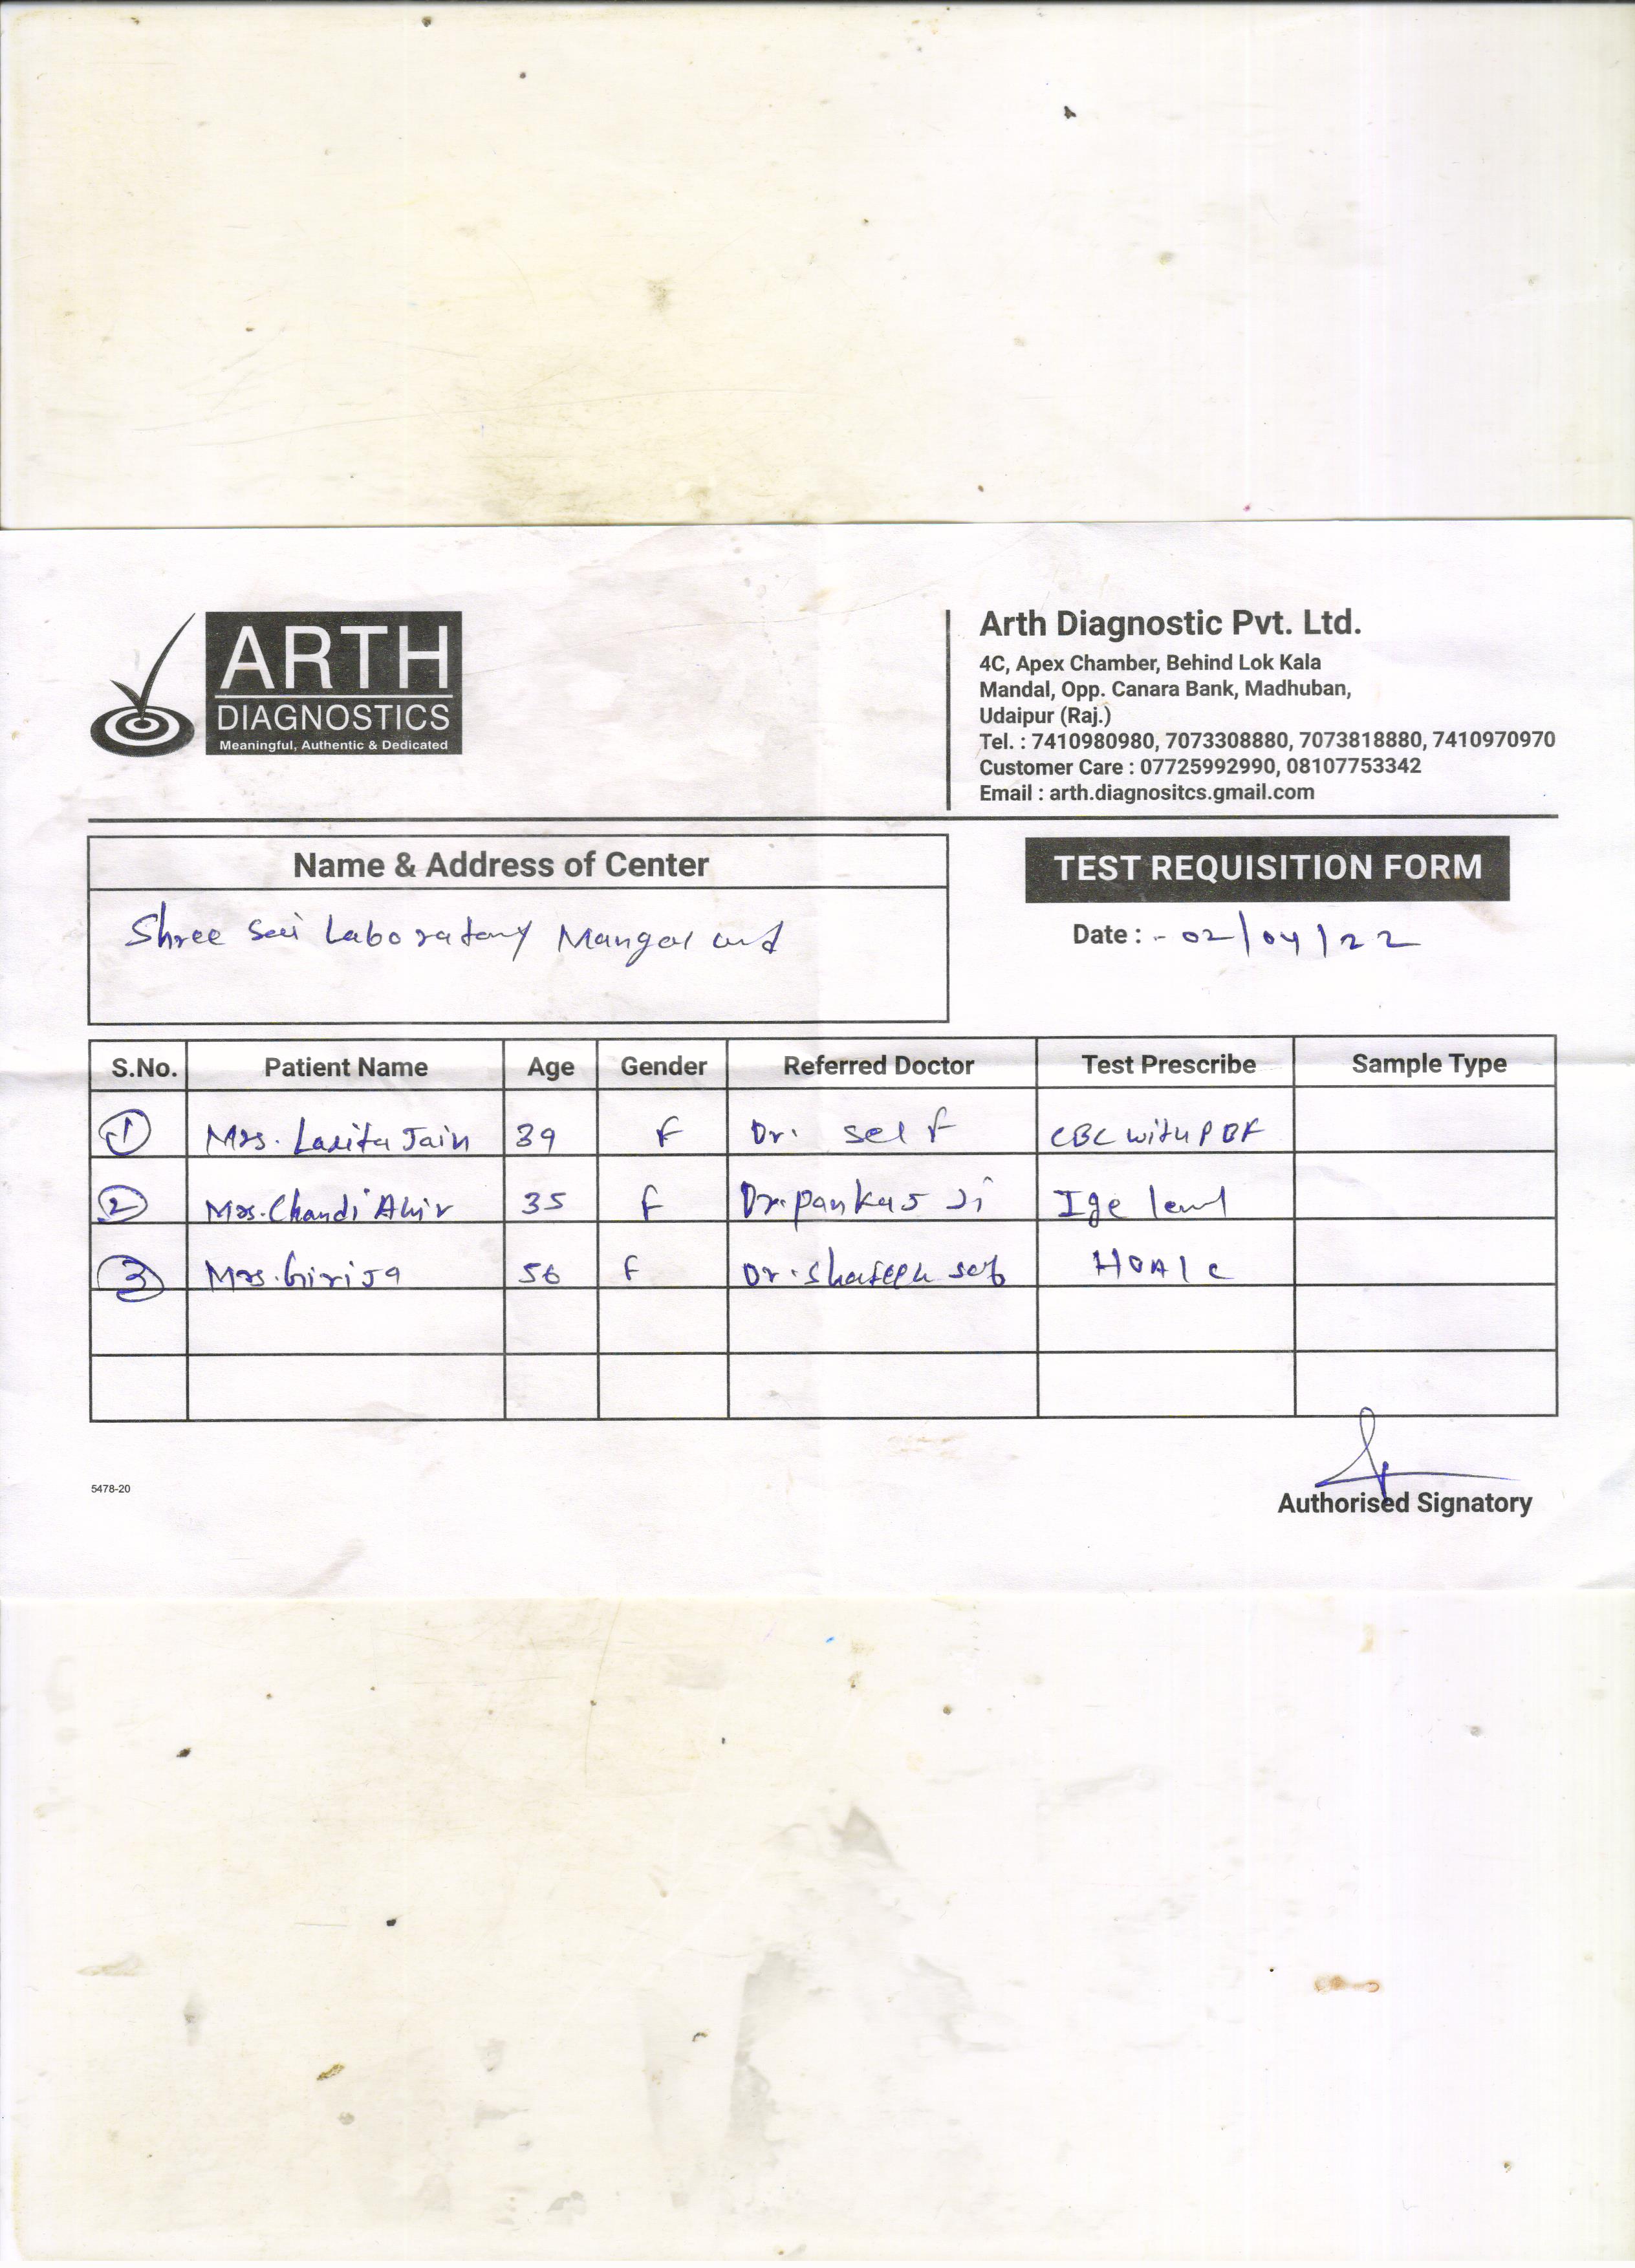 ARTH
DIAGNOSTICS
Meaningful, Authentic & Dedicated
Arth Diagnostic Pvt. Ltd.
4C, Apex Chamber, Behind Lok Kala
Mandal, Opp. Canara Bank, Madhuban,
Udaipur (Raj.)
Tel. : 7410980980, 7073308880, 7073818880, 7410970970
Customer Care : 07725992990, 08107753342
Email : arth.diagnositcs.gmail.com
Name & Address of Center
TEST REQUISITION FORM
Shree Sai Laboratory
Date : - 02/04/22
S.No. Patient Name Age Gender Referred Doctor Test Prescribe Sample Type
1 Mrs. Lalita Jain 39 F Dr. self CBC with PBF
2 Mrs. Chandi Ahir 35 F Dr. Pankaj Ji Ige level
3 Mrs. Girija 56 F Dr. HBA1C
5478-20
Authorised Signatory